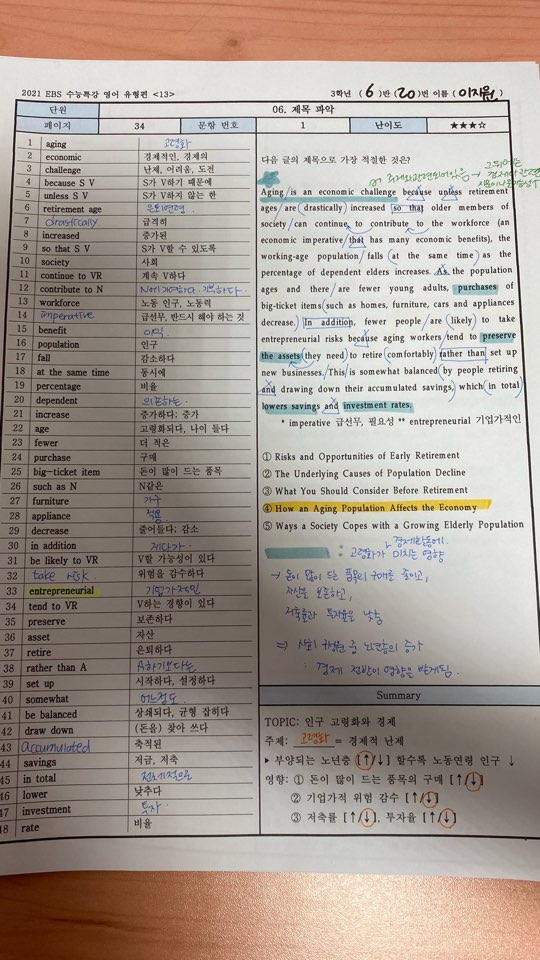 2021 EBS 수능특강 영어 유형편 <13>
3학년 ( 6 )반 ( 20 )번 이름 ( 이지원 )
단원 06. 제목 파악
페이지 34 문항 번호 1 난이도 ★★★☆
1 aging 고령화
2 economic 경제적인, 경제의
3 challenge 난제, 어려움, 도전
4 because S V S가 V하기 때문에
5 unless S V S가 V하지 않는 한
6 retirement age 은퇴연령
7 drastically 급격히
8 increased 증가된
9 so that S V S가 V할 수 있도록
10 society 사회
11 continue to VR 계속 V하다
12 contribute to N N에 기여하다. 기부하다.
13 workforce 노동 인구, 노동력
14 imperative 급선무, 반드시 해야 하는 것
15 benefit 이익
16 population 인구
17 fall 감소하다
18 at the same time 동시에
19 percentage 비율
20 dependent 의존하는
21 increase 증가하다; 증가
22 age 고령화되다, 나이 들다
23 fewer 더 적은
24 purchase 구매
25 big-ticket item 돈이 많이 드는 품목
26 such as N N같은
27 furniture 가구
28 appliance 적용
29 decrease 줄어들다; 감소
30 in addition 게다가
31 be likely to VR V할 가능성이 있다
32 take risk 위험을 감수하다
33 entrepreneurial 기업가적인
34 tend to VR V하는 경향이 있다
35 preserve 보존하다
36 asset 자산
37 retire 은퇴하다
38 rather than A A하기보다는
39 set up 시작하다, 설정하다
40 somewhat 어느정도
41 be balanced 상쇄되다, 균형 잡히다
42 draw down (돈을) 찾아 쓰다
43 accumulated 축적된
44 savings 저금, 저축
45 in total 전체적으로
46 lower 낮추다
47 investment 투자
48 rate 비율
다음 글의 제목으로 가장 적절한 것은?
Aging is an economic challenge because unless retirement
ages are drastically increased so that older members of
society can continue to contribute to the workforce (an
economic imperative that has many economic benefits), the
working-age population falls at the same time as the
percentage of dependent elders increases. As the population
ages and there are fewer young adults, purchases of
big-ticket items such as homes, furniture, cars and appliances
decrease. In addition, fewer people are likely to take
entrepreneurial risks because aging workers tend to preserve
the assets they need to retire comfortably rather than set up
new businesses. This is somewhat balanced by people retiring
and drawing down their accumulated savings, which in total
lowers savings and investment rates.
* imperative 급선무, 필요성 ** entrepreneurial 기업가적인
① Risks and Opportunities of Early Retirement
② The Underlying Causes of Population Decline
③ What You Should Consider Before Retirement
④ How an Aging Population Affects the Economy
⑤ Ways a Society Copes with a Growing Elderly Population
↳ 경제활동에
: 고령화가 미치는 영향
→ 돈이 많이 드는 품목의 구매를 줄이고,
자산을 보존하고,
저축률과 투자율을 낮춤
⇒ 사회 구성원 중 노년층의 증가
: 경제 전반이 영향을 받게됨.
Summary
TOPIC: 인구 고령화와 경제
주제: 고령화 = 경제적 난제
▶ 부양되는 노년층 [↑/↓] 할수록 노동연령 인구 ↓
영향: ① 돈이 많이 드는 품목의 구매 [↑/↓]
② 기업가적 위험 감수 [↑/↓]
③ 저축률 [↑/↓], 투자율 [↑/↓]